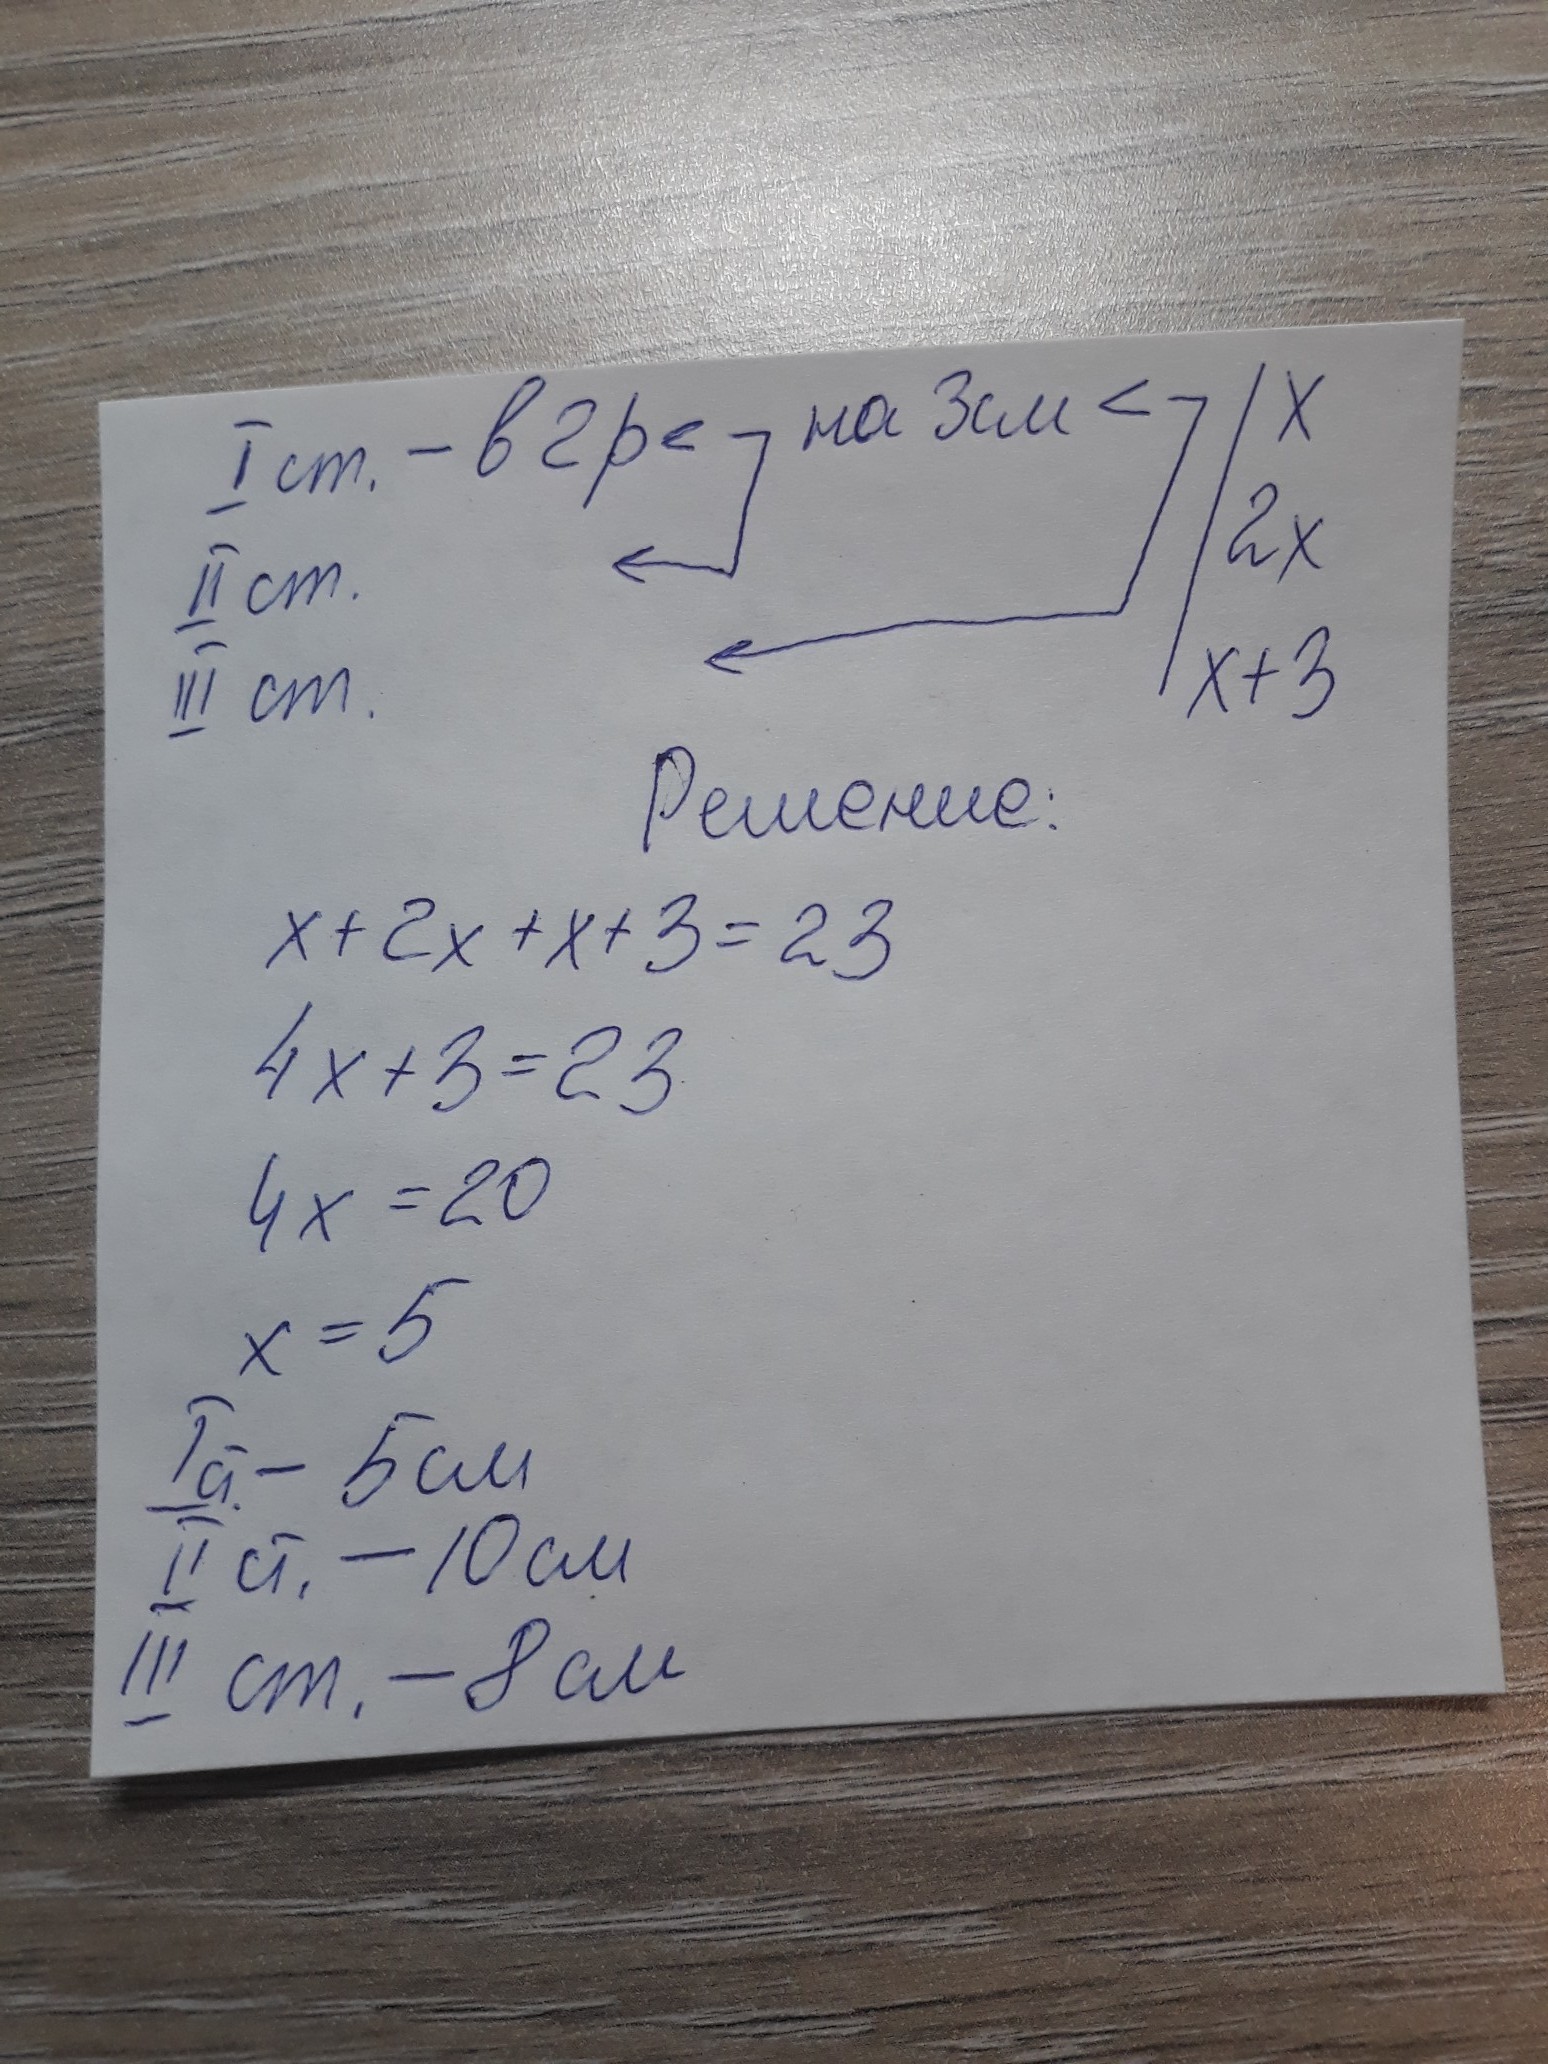 I ст. - в 2 р < на 3 см < x
II ст. 2x
III ст. x+3
Решение:
x+2x+x+3=23
4x+3=23
4x=20
x=5
I ст. - 5 см
II ст. - 10 см
III ст. - 8 см